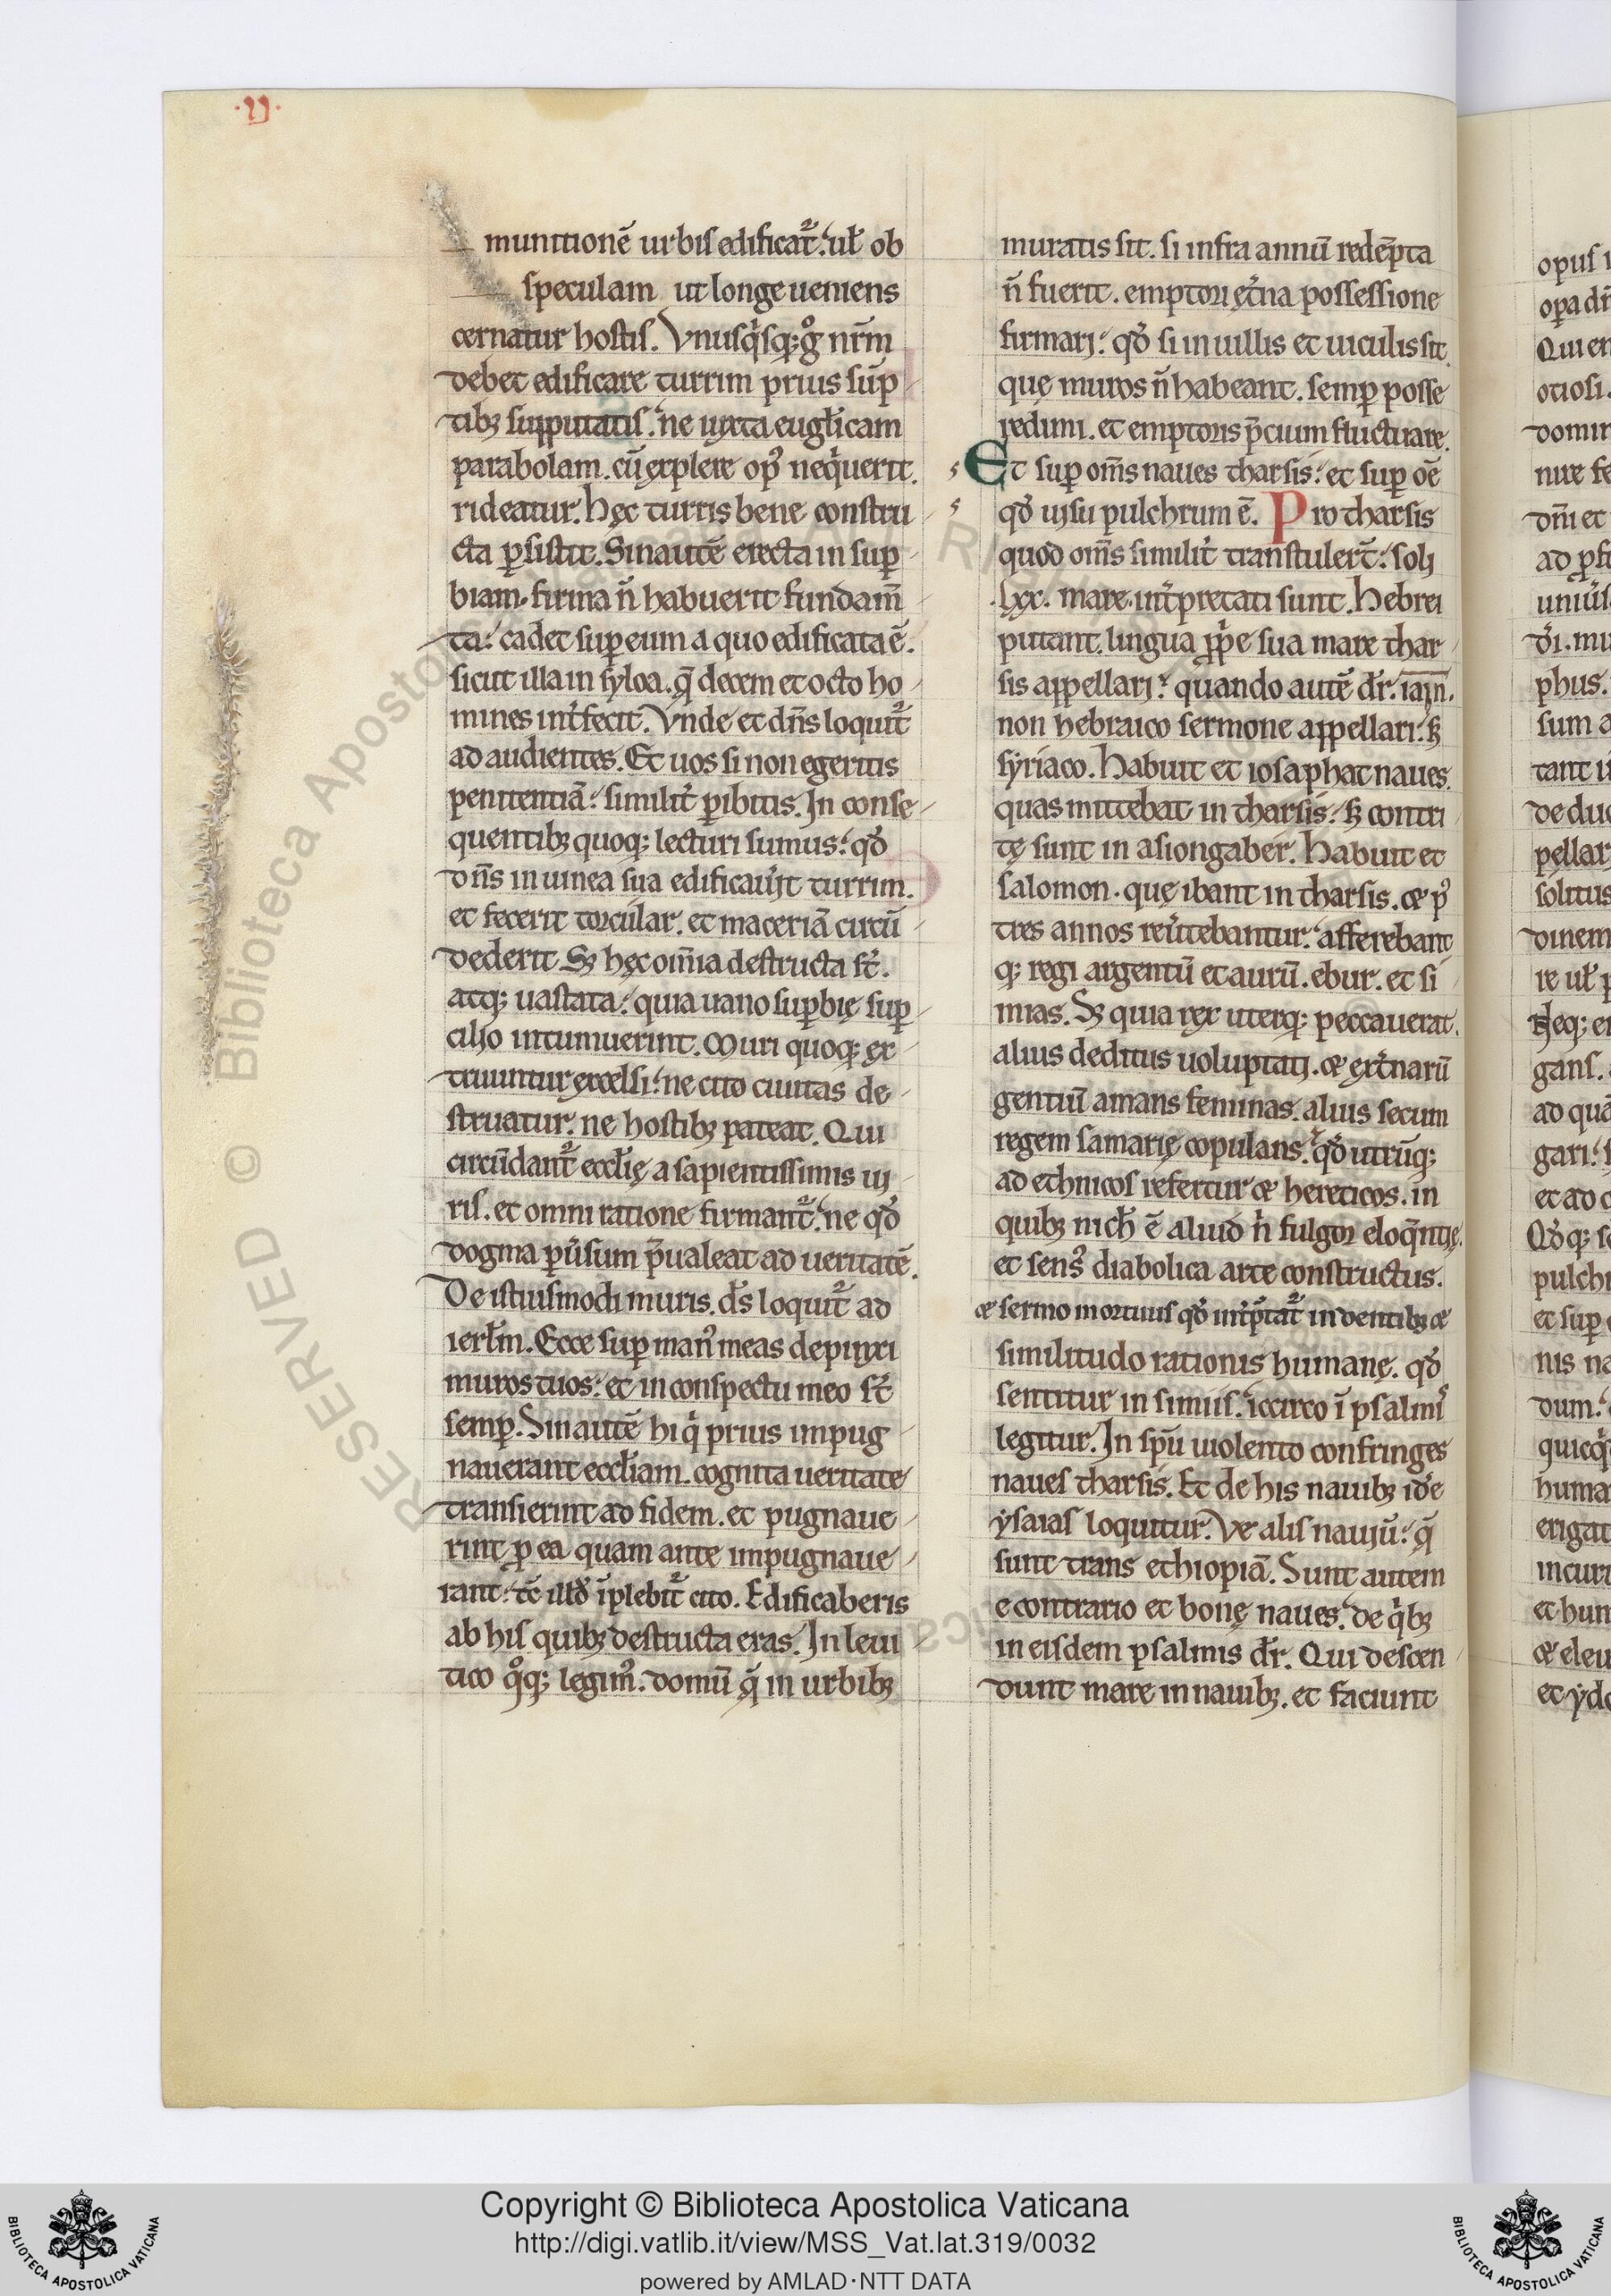 ·II·
munitionē urbis edificat᷑. ul̄ ob
speculam ut longe ueniens
cernatur hostis. Vnusq̇sq; gͦ nr̄m
debet edificare turrim prius sūp
tib; supputatis. ne iuxta eugl̄icam
parabolam. cū explere opꝰ neq̇uerit.
rideatur. Hęc turris bene constru
cta ꝑsistit. Sin autē erecta in suꝑ
biam. firma n̄ habuerit fundam̄
ta: cadet suꝑ eum a quo edificata ē.
sicut illa in syloa. q̄ decem et octo ho
mines int͛fecit. Vnde et dn̄s loquit᷑
ad audientes. Et uos si non egeritis
penitentiā: similit͛ ꝑibitis. In conse
quentib; quoq; lecturi sumus: qd̓
dn̄s in uinea sua edificau͛it turrim.
et fecerit torcular. et maceriā circū
dederit. S; hęc om̄ia destructa st̄.
atq; uastata: quia uano suꝑbię suꝑ
cilio intumuerint. Muri quoq; ex
truuntur excelsi: ne cito ciuitas de
struatur. ne hostib; pateat. Qui
circūdant᷑ eccl̄ię a sapientissimis ui
ris. et omni ratione firmant᷑. ne qd̓
dogma ꝑu͛sum p̄ualeat ad ueritatē.
De istiusmodi muris. d̄s loquit᷑ ad
ierl̄m. Ecce suꝑ manꝰ meas depinxi
muros tuos: et in conspectu meo st̄
semꝑ. Sin autē hi q̇ prius impug
nauerant eccl̄iam. cognita ueritate
transierint ad fidem. et pugnaue
rint ꝓ ea quam ante impugnaue
rant: tc̄ illd̓ īplebit᷑ cito. Edificaberis
ab his quib; destructa eras. In leui
tico qͦq; legimꝰ. domū q̄ in urbib;
muratis sit. si infra annū redēpta
n̄ fuerit. emptori ęt͛na possessione
firmari: qd̓ si in uillis et uiculis sit
quę muros n̄ habeant. semꝑ posse
redimi. et emptoris p̄cium fluctuare.
Et suꝑ om̄s naues tharsis: et suꝑ oē
qd̓ uisu pulchrum ē. Pro tharsis
quod om̄s similit͛ transtuler̄t: soli
.lxx. mare int͛pretati sunt. Hebrei
putant. lingua ꝓp̓e sua mare thar
sis appellari: quando autē dr̄. iam.
non hebraico sermone appellari: s;
syriaco. Habuit et iosaphat naues.
quas mittebat in tharsis: s; contri
tę sunt in asiongaber. Habuit et
salomon. quę ibant in tharsis. & pꝰ
tres annos reu͛tebantur. afferebant
q; regi argentū et aurū. ebur. et si
mias. S; quia rex uterq; peccauerat.
alius deditus uoluptati. & ext͛narū
gentiū amans feminas. alius secum
regem samarię copulans. qd̓ utrūq;
ad ethnicos refertur & hereticos. in
quib; nich̄ ē aliud n̓ fulgor eloq̄ntię.
et sensꝰ diabolica arte constructus.
& sermo mortuus qd̓ int͛p̄tat᷑ in dentib; &
similitudo rationis humanę. qd̓
sentitur in simiis. iccirco ī psalmꝭ
legitur. In sp̄u uiolento confringes
naues tharsis. Et de his nauib; idē
ysaias loquitur. Ve alis nauiū: q̄
sunt trans ethiopiā. Sunt autem
e contrario et bonę naues. de q̇b;
in eisdem psalmis dr̄. Qui descen
dunt mare in nauib;. et faciunt
Copyright © Biblioteca Apostolica Vaticana
http://digi.vatlib.it/view/MSS_Vat.lat.319/0032
powered by AMLAD·NTT DATA